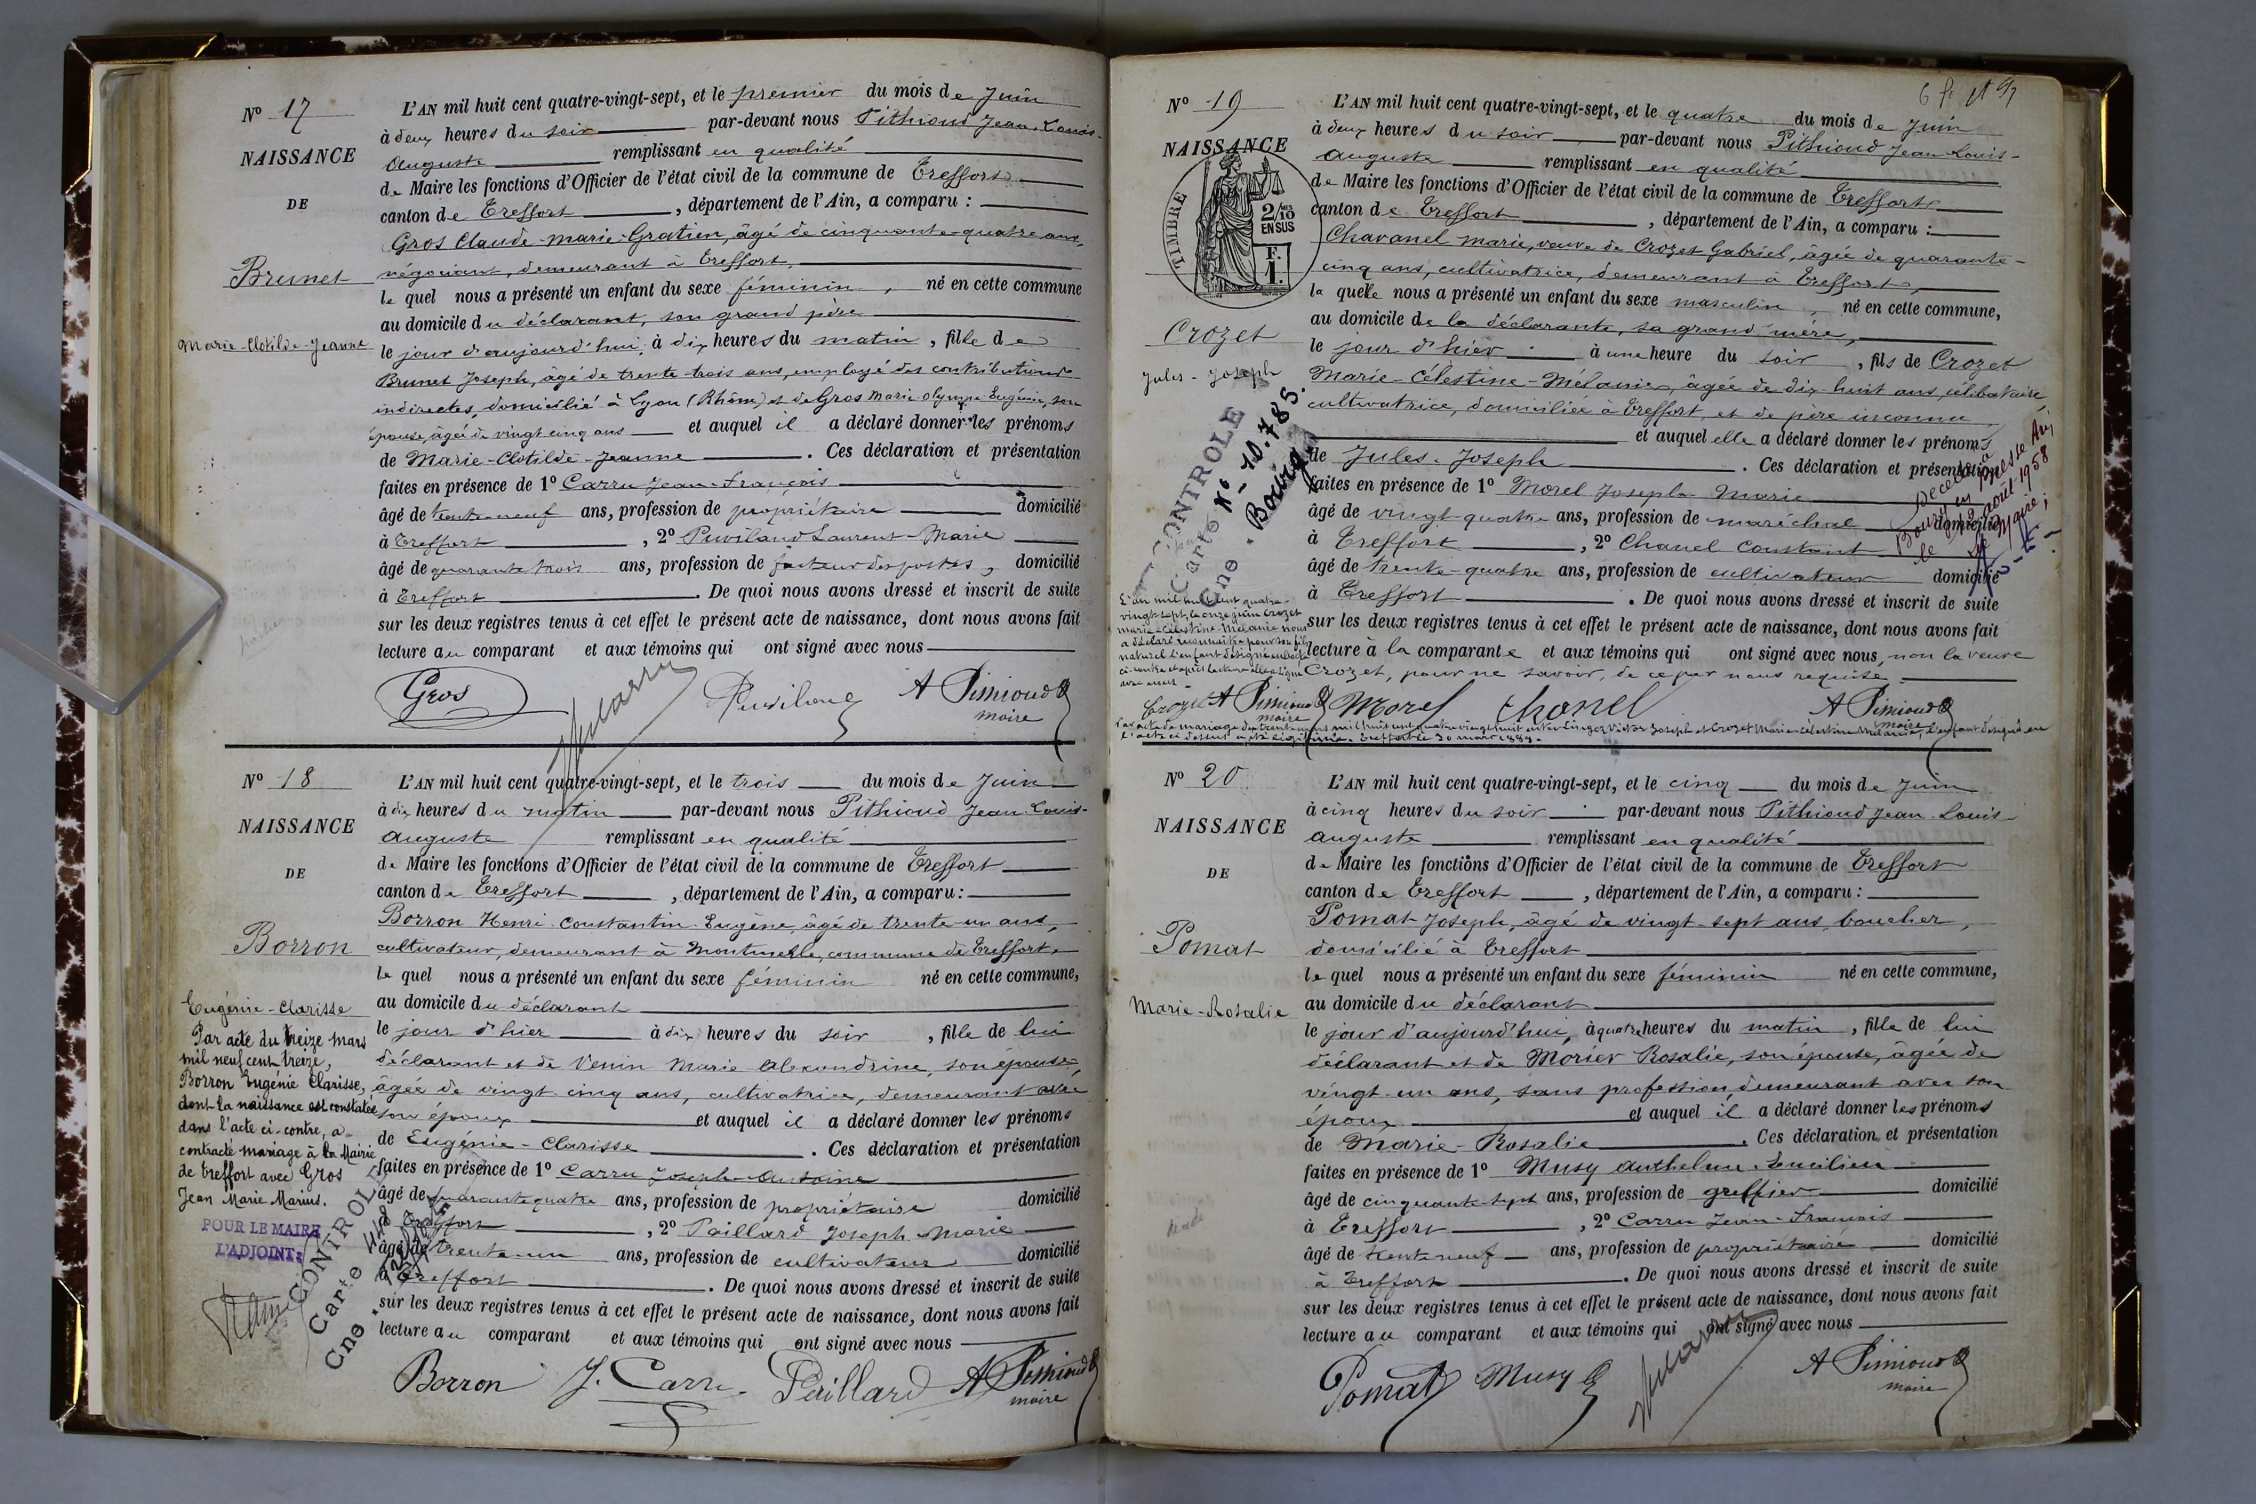 N° 17
NAISSANCE
DE
Brunet
Marie-Clotilde-Jeanne
L'AN mil huit cent quatre-vingt-sept, et le premier du mois de Juin
à deux heures du soir par-devant nous Pithioud Jean-Louis-
Auguste remplissant en qualité
de Maire les fonctions d'Officier de l'état civil de la commune de Treffort
canton de Treffort, département de l'Ain, a comparu :
Gros Claude-Marie-Gratien, âgé de cinquante-quatre ans,
négociant, demeurant à Treffort,
le quel nous a présenté un enfant du sexe féminin, né en cette commune
au domicile du déclarant, son grand père
le jour d'aujourd'hui à dix heures du matin, fille de
Brunet Joseph, âgé de trente-trois ans, employé des contributions
indirectes, domicilié à Lyon (Rhône) et de Gros Marie Olympe Eugénie, son
épouse, âgée de vingt cinq ans et auquel il a déclaré donner les prénoms
de Marie-Clotilde-Jeanne. Ces déclaration et présentation
faites en présence de 1° Carru Jean-François
âgé de trente-neuf ans, profession de propriétaire domicilié
à Treffort, 2° Puviland Laurent-Marie
âgé de quarante trois ans, profession de facteur des postes, domicilié
à Treffort. De quoi nous avons dressé et inscrit de suite
sur les deux registres tenus à cet effet le présent acte de naissance, dont nous avons fait
lecture au comparant et aux témoins qui ont signé avec nous
Gros Puviland A Pithioud
maire
N° 18
NAISSANCE
DE
Borron
Eugénie-Clarisse
Par acte du treize mars
mil neuf cent treize,
Borron Eugénie Clarisse,
dont la naissance est constatée
dans l'acte ci-contre, a
contracté mariage à la Mairie
de Treffort avec Gros
Jean Marie Marius.
POUR LE MAIRE
L'ADJOINT:
CONTROLE
Carte
Cne.
L'AN mil huit cent quatre-vingt-sept, et le trois du mois de Juin
à dix heures du matin par-devant nous Pithioud Jean-Louis-
Auguste remplissant en qualité
de Maire les fonctions d'Officier de l'état civil de la commune de Treffort
canton de Treffort, département de l'Ain, a comparu :
Borron Henri-Constantin-Eugène, âgé de trente-un ans,
cultivateur, demeurant à Montmerle, commune de Treffort
le quel nous a présenté un enfant du sexe féminin né en cette commune,
au domicile du déclarant
le jour d'hier à dix heures du soir, fille de lui
déclarant et de Venin Marie Alexandrine, son épouse,
âgée de vingt cinq ans, cultivatrice, demeurant avec
son époux et auquel il a déclaré donner les prénoms
de Eugénie-Clarisse. Ces déclaration et présentation
faites en présence de 1° Carru Joseph-Antoine
âgé de quarante quatre ans, profession de propriétaire domicilié
à Treffort, 2° Paillard Joseph-Marie
âgé de trente-un ans, profession de cultivateur domicilié
à Treffort. De quoi nous avons dressé et inscrit de suite
sur les deux registres tenus à cet effet le présent acte de naissance, dont nous avons fait
lecture au comparant et aux témoins qui ont signé avec nous
Borron J. Carru Paillard A Pithioud
maire
N° 19
NAISSANCE
TIMBRE
2/10 EN SUS
F. 1.
Crozet
Jules-Joseph
CONTROLE
Carte N° 10.785.
Cne. Bourg
L'AN mil huit cent quatre-vingt-sept, et le quatre du mois de Juin
à deux heures du soir par-devant nous Pithioud Jean-Louis-
Auguste remplissant en qualité
de Maire les fonctions d'Officier de l'état civil de la commune de Treffort
canton de Treffort, département de l'Ain, a comparu :
Chavanel Marie, veuve de Crozet Gabriel, âgée de quarante-
cinq ans, cultivatrice, demeurant à Treffort,
la quelle nous a présenté un enfant du sexe masculin, né en cette commune,
au domicile de la déclarante, sa grand'mère,
le jour d'hier à une heure du soir, fils de Crozet
Marie-Célestine-Mélanie, âgée de dix-huit ans, célibataire,
cultivatrice, domiciliée à Treffort, et de père inconnu
et auquel elle a déclaré donner les prénoms
de Jules-Joseph. Ces déclaration et présentation
faites en présence de 1° Morel Joseph-Marie
âgé de vingt-quatre ans, profession de maréchal domicilié
à Treffort, 2° Chanel Constant
âgé de trente-quatre ans, profession de cultivateur domicilié
à Treffort. De quoi nous avons dressé et inscrit de suite
sur les deux registres tenus à cet effet le présent acte de naissance, dont nous avons fait
lecture à la comparante et aux témoins qui ont signé avec nous, non la veuve
Crozet, pour ne savoir, de ce par nous requise.
Décédé à
Bourg en Bresse Ain
le 13 août 1958
Le Maire;
L'an mil huit cent quatre-
vingt-sept, le onze juin Crozet
Marie-Célestine-Mélanie nous
a déclaré reconnaître pour son fils
naturel l'enfant désigné en l'acte
ci-contre et après lecture elle a signé
avec nous.
Crozet A Pithioud Morel Chanel A Pithioud
maire maire
N° 20
NAISSANCE
DE
Pomat
Marie-Rosalie
L'AN mil huit cent quatre-vingt-sept, et le cinq du mois de Juin
à cinq heures du soir par-devant nous Pithioud Jean-Louis-
Auguste remplissant en qualité
de Maire les fonctions d'Officier de l'état civil de la commune de Treffort
canton de Treffort, département de l'Ain, a comparu :
Pomat Joseph, âgé de vingt-sept ans, boucher,
domicilié à Treffort
le quel nous a présenté un enfant du sexe féminin né en cette commune,
au domicile du déclarant
le jour d'aujourd'hui, à quatre heures du matin, fille de lui
déclarant et de Morier Rosalie, son épouse, âgée de
vingt-un ans, sans profession, demeurant avec son
époux et auquel il a déclaré donner les prénoms
de Marie-Rosalie. Ces déclaration et présentation
faites en présence de 1° Musy Anthelme-Emilien
âgé de cinquante-sept ans, profession de greffier domicilié
à Treffort, 2° Carru Jean-François
âgé de trente neuf ans, profession de propriétaire domicilié
à Treffort. De quoi nous avons dressé et inscrit de suite
sur les deux registres tenus à cet effet le présent acte de naissance, dont nous avons fait
lecture au comparant et aux témoins qui ont signé avec nous
Pomat Musy A Pithioud
maire